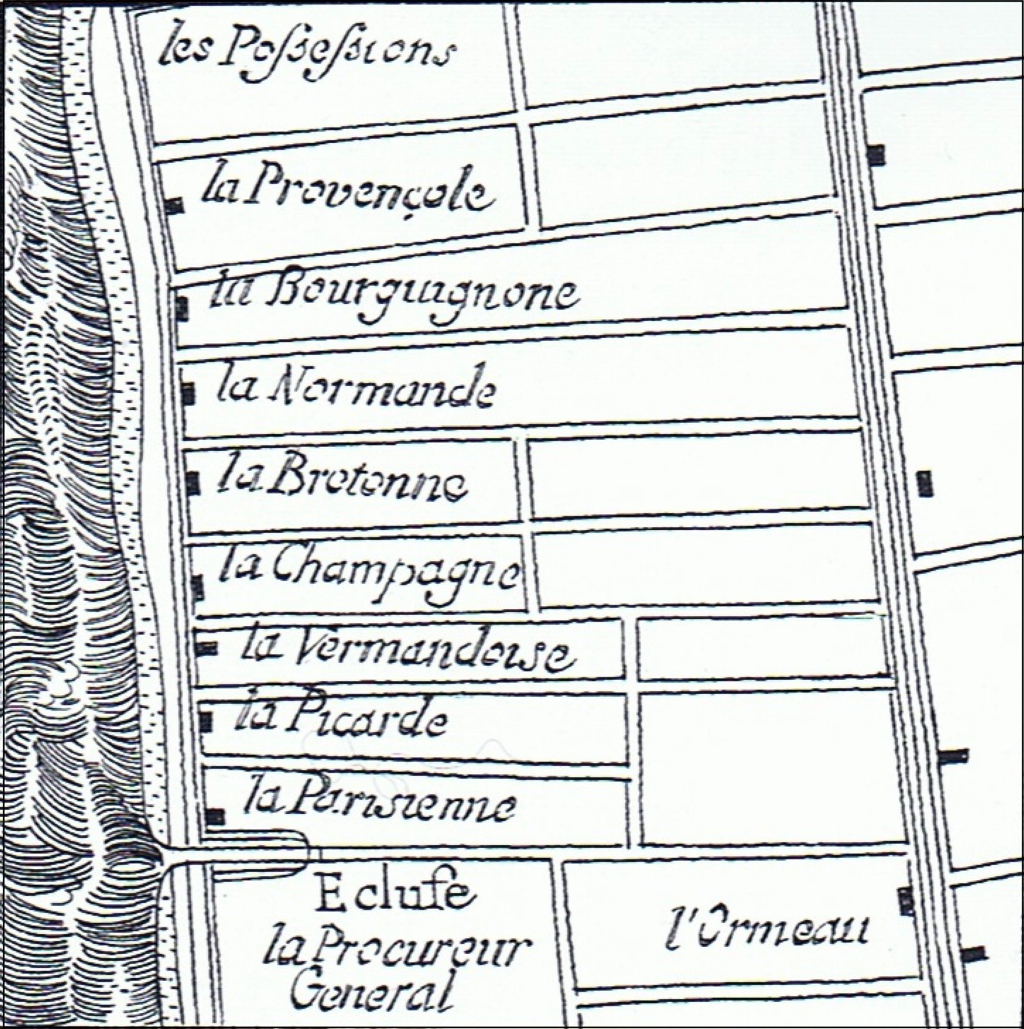 les Poſseſsions
la Provençale
la Bourguignone
la Normande
la Bretonne
la Champagne
la Vermandoise
la Picarde
la Parisienne
Ecluſe
la Procureur
General
l'Ormeau